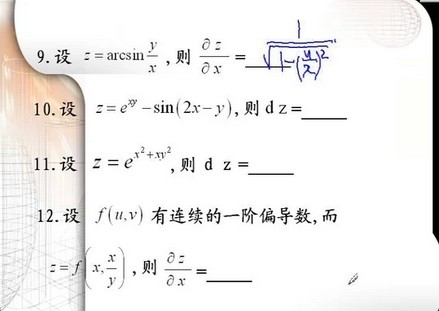 9.设 z = arcsin y/x ,则 ∂z/∂x = ____ 1/√(1-(y/x)²)
10.设 z = e^{xy} − sin(2x−y),则 d z = ____
11.设 z = e^{x²+xy²},则 d z = ____
12.设 f(u,v) 有连续的一阶偏导数,而
z = f(x, x/y) ,则 ∂z/∂x = ____